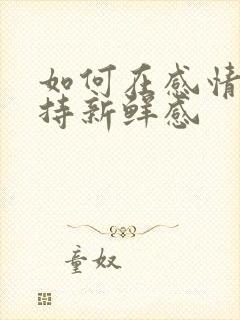 如何在感情
持新鲜感
童奴